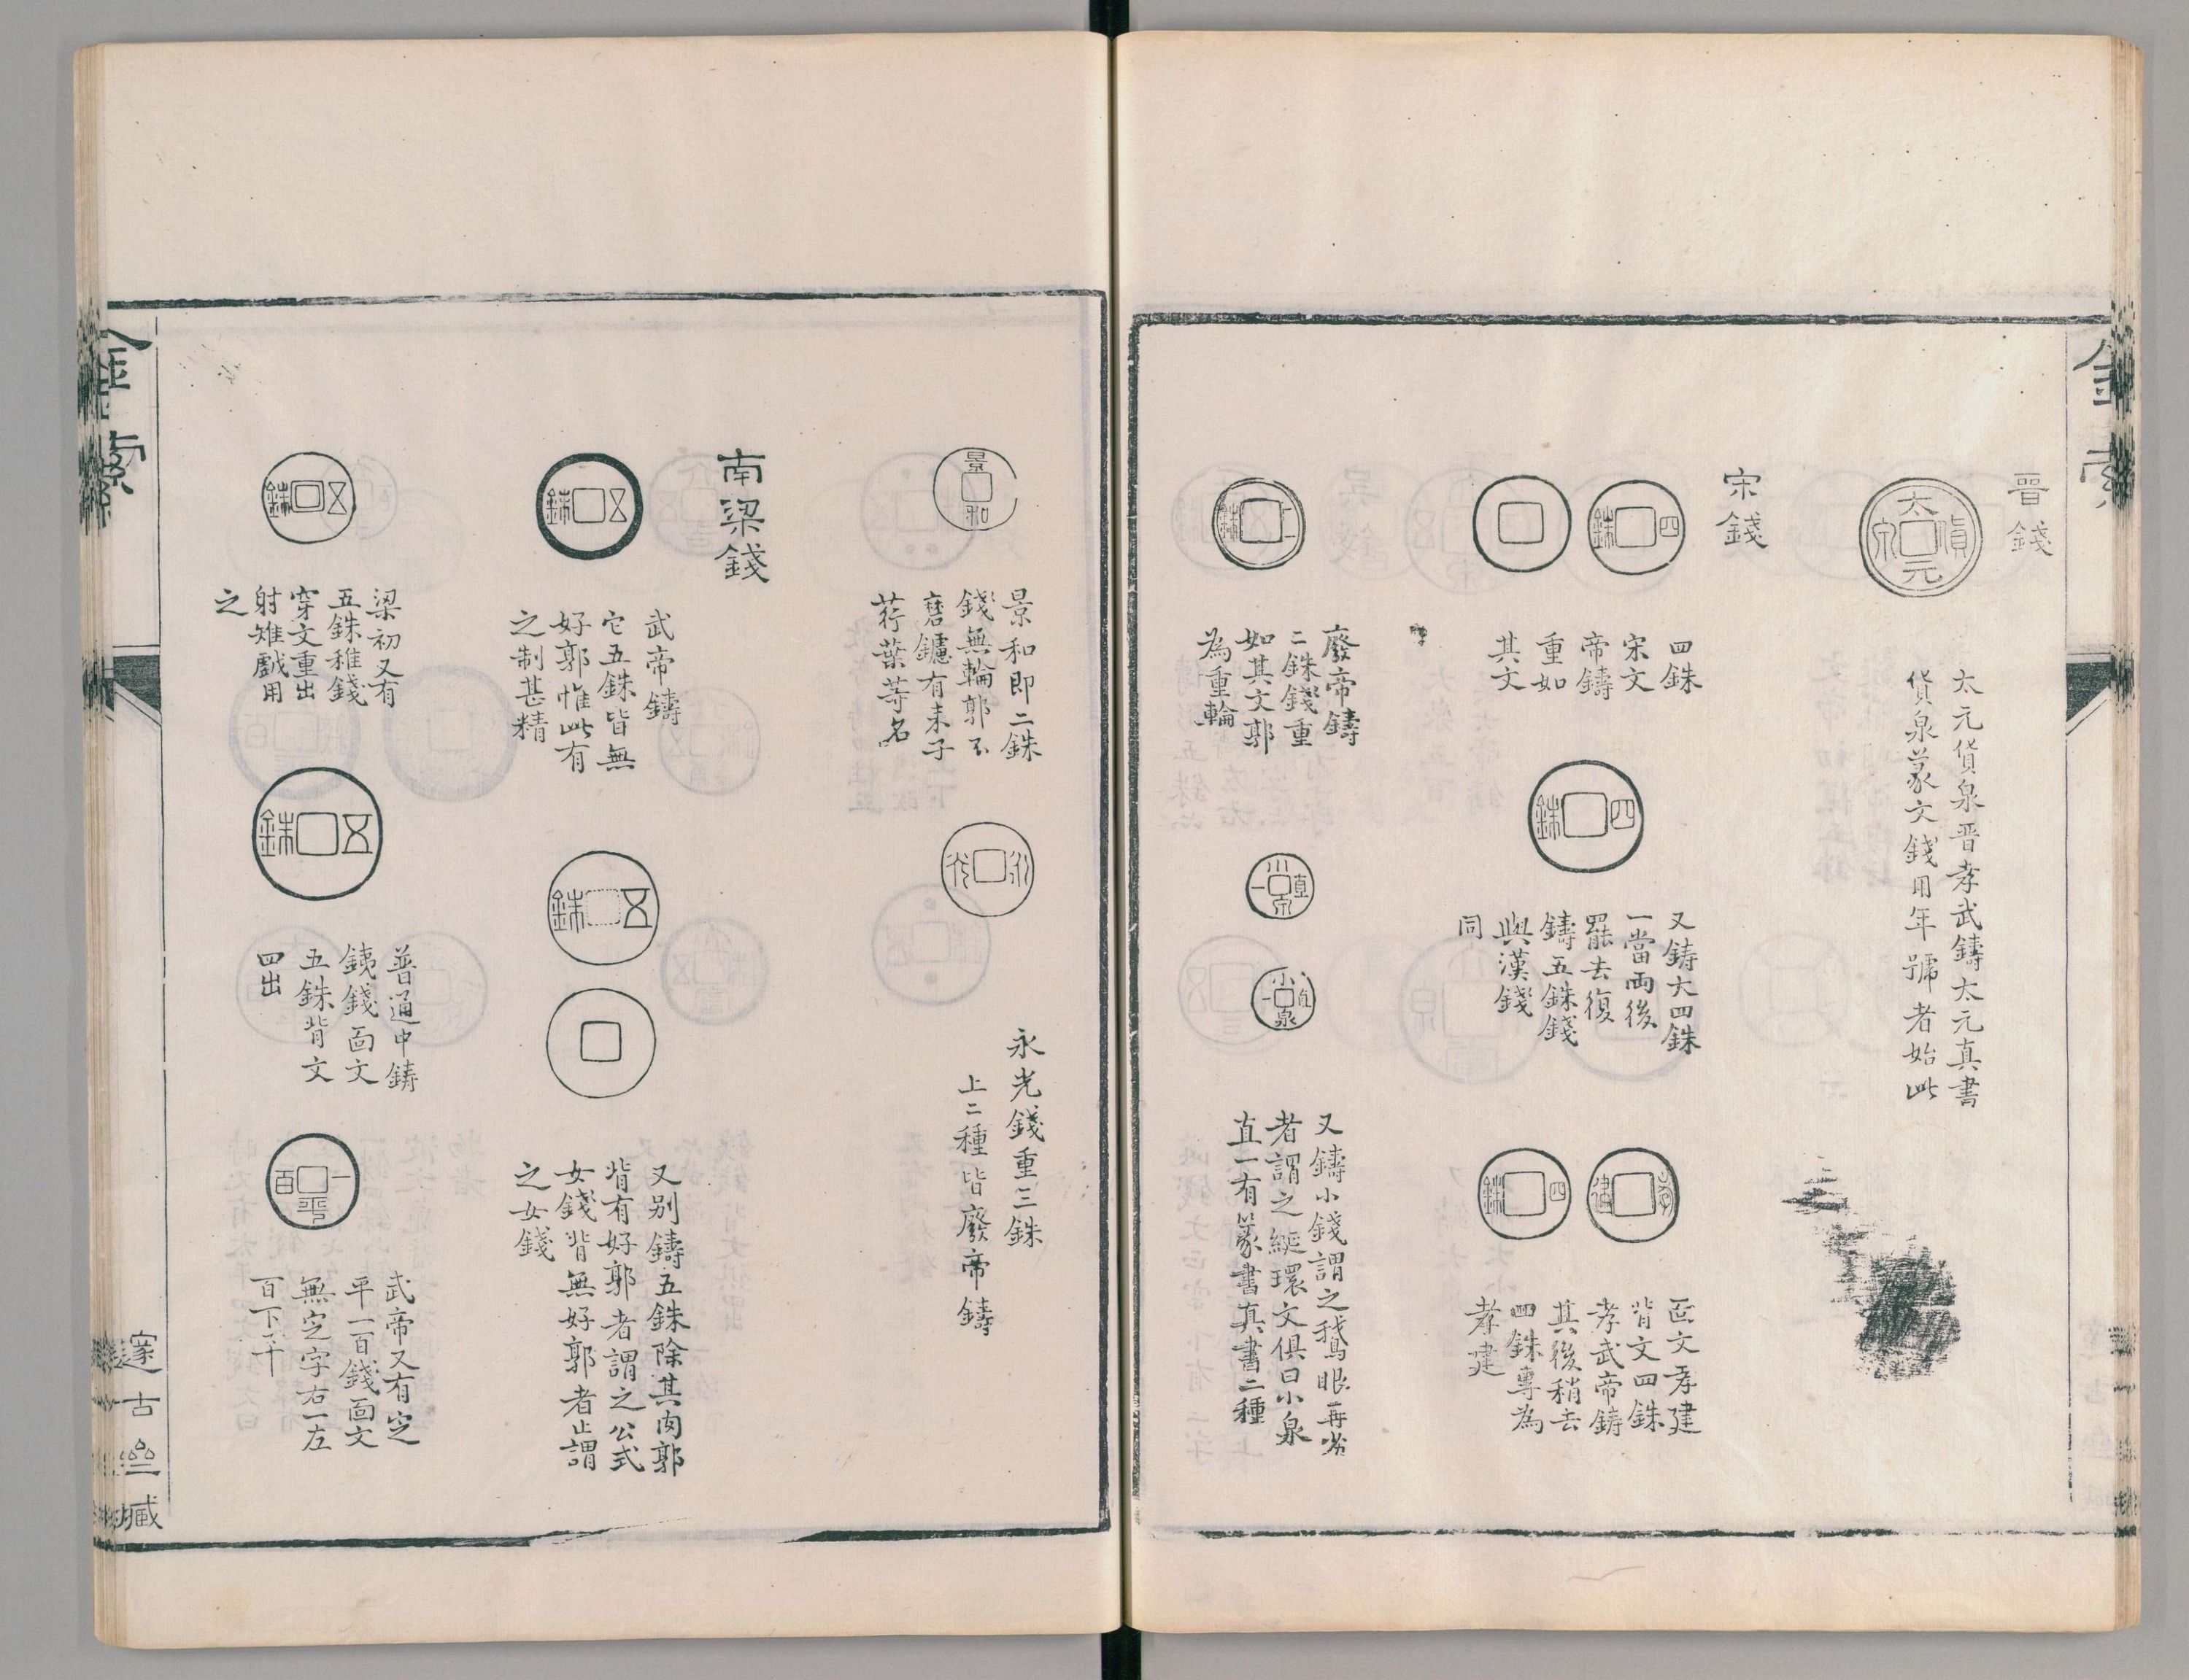 金索
晉錢
太元貨泉
太元貨泉晋孝武鑄太元真書
貨泉篆文錢用年號者始此
宋錢
四銖
四銖
宋文
帝鑄
重如
其文
四銖
又鑄大四銖
一當兩後
罷去復
鑄五銖錢
與漢錢
同
孝建
四銖
靣文孝建
背文四銖
孝武帝鑄
其後稍去
四銖專為
孝建
二銖
廢帝鑄
二銖錢重
如其文郭
為重輪
小泉直一
小泉直一
又鑄小錢謂之鵝眼再劣
者謂之綖環文俱曰小泉
直一有篆書真書二種
景和
景和即二銖
錢無輪郭不
磨鑢有耒子
荇葉等名
永光
永光錢重三銖
上二種皆廢帝鑄
南梁錢
五銖
武帝鑄
它五銖皆無
好郭惟此有
之制甚精
五銖
又别鑄五銖除其肉郭
背有好郭者謂之公式
女錢背無好郭者止謂
之女錢
五銖
梁初又有
五銖稚錢
穿文重出
射雉戲用
之
五銖
普通中鑄
銕錢面文
五銖背文
四出
一百平
武帝又有定
平一百錢面文
無定字右一左
百下平
金索
邃古齋藏